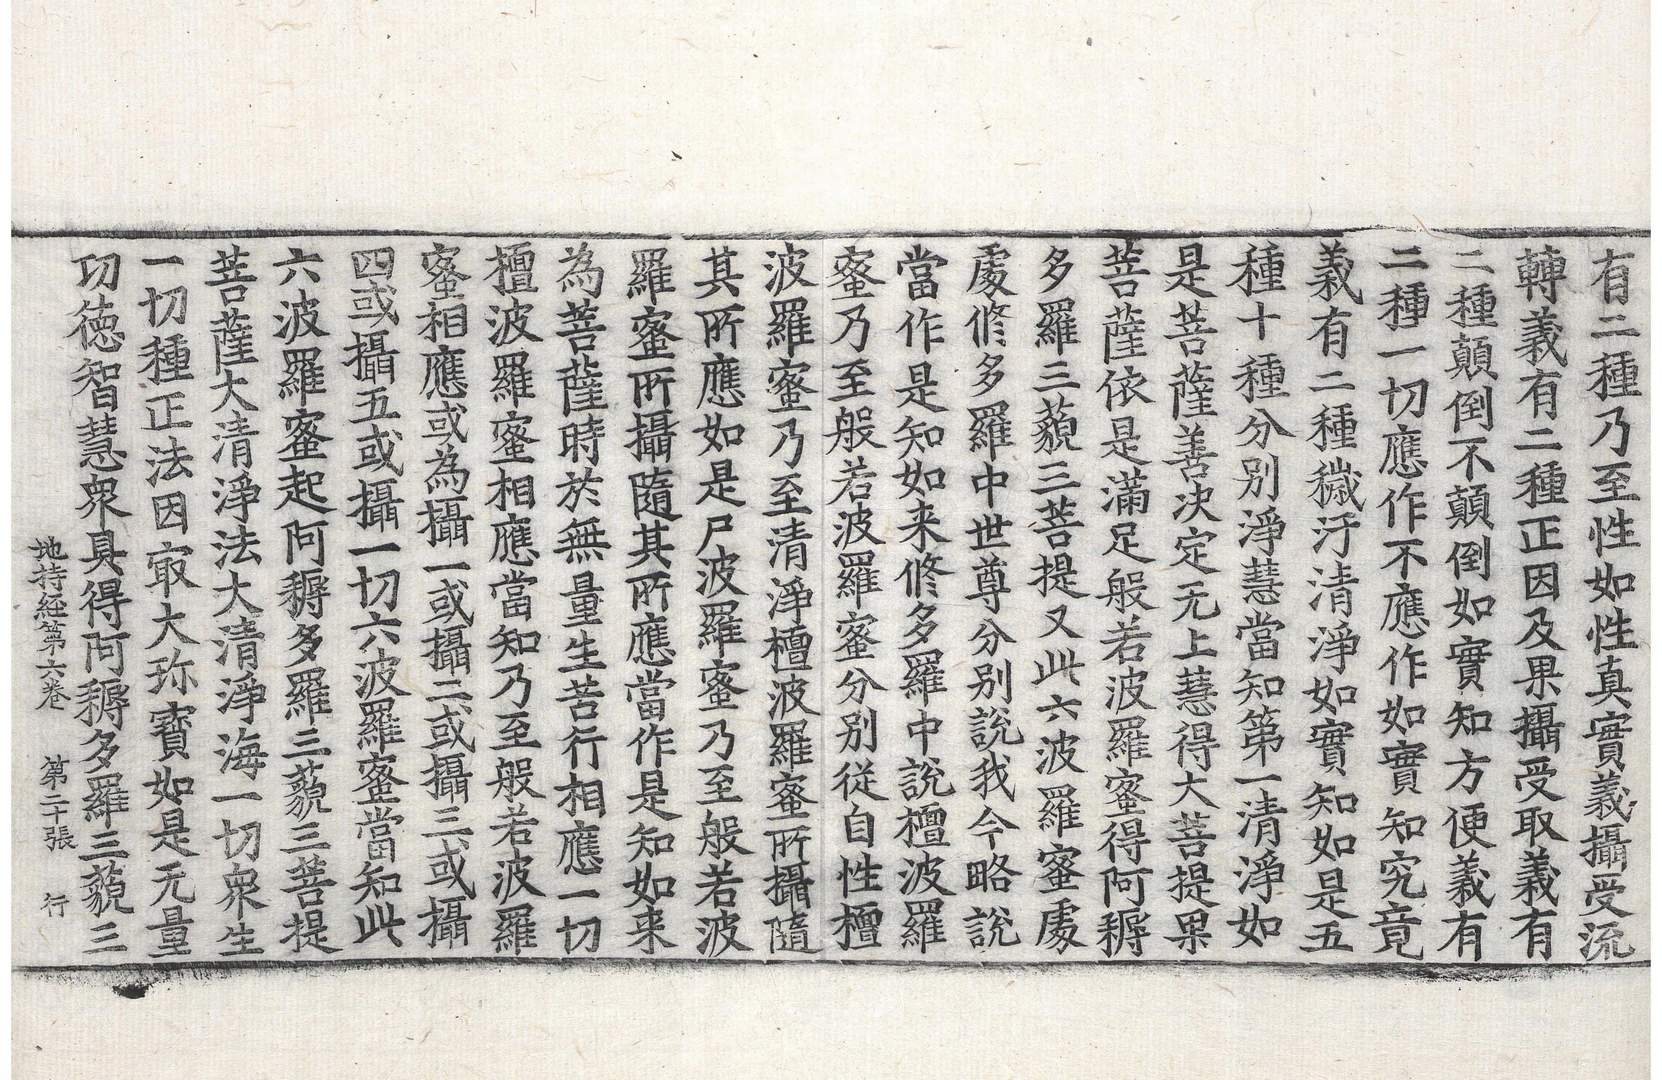 有二種乃至性如性真實義攝受流
轉義有二種正因及果攝受取義有
二種顛倒不顛倒如實知方便義有
二種一切應作不應作如實知究竟
義有二種穢汙清淨如實知如是五
種十種分別淨慧當知第一清淨如
是菩薩善決定无上慧得大菩提果
菩薩依是滿足般若波羅蜜得阿耨
多羅三藐三菩提又此六波羅蜜處
處修多羅中世尊分別說我今略說
當作是知如来修多羅中說檀波羅
蜜乃至般若波羅蜜分別從自性檀
波羅蜜乃至清淨檀波羅蜜所攝隨
其所應如是尸波羅蜜乃至般若波
羅蜜所攝隨其所應當作是知如来
為菩薩時於無量生苦行相應一切
檀波羅蜜相應當知乃至般若波羅
蜜相應或為攝一或攝二或攝三或攝
四或攝五或攝一切六波羅蜜當知此
六波羅蜜起阿耨多羅三藐三菩提
菩薩大清淨法大清淨海一切衆生
一切種正法因㝡大珎寶如是无量
功徳智慧衆具得阿耨多羅三藐三
地持経第六卷 第二十張 行